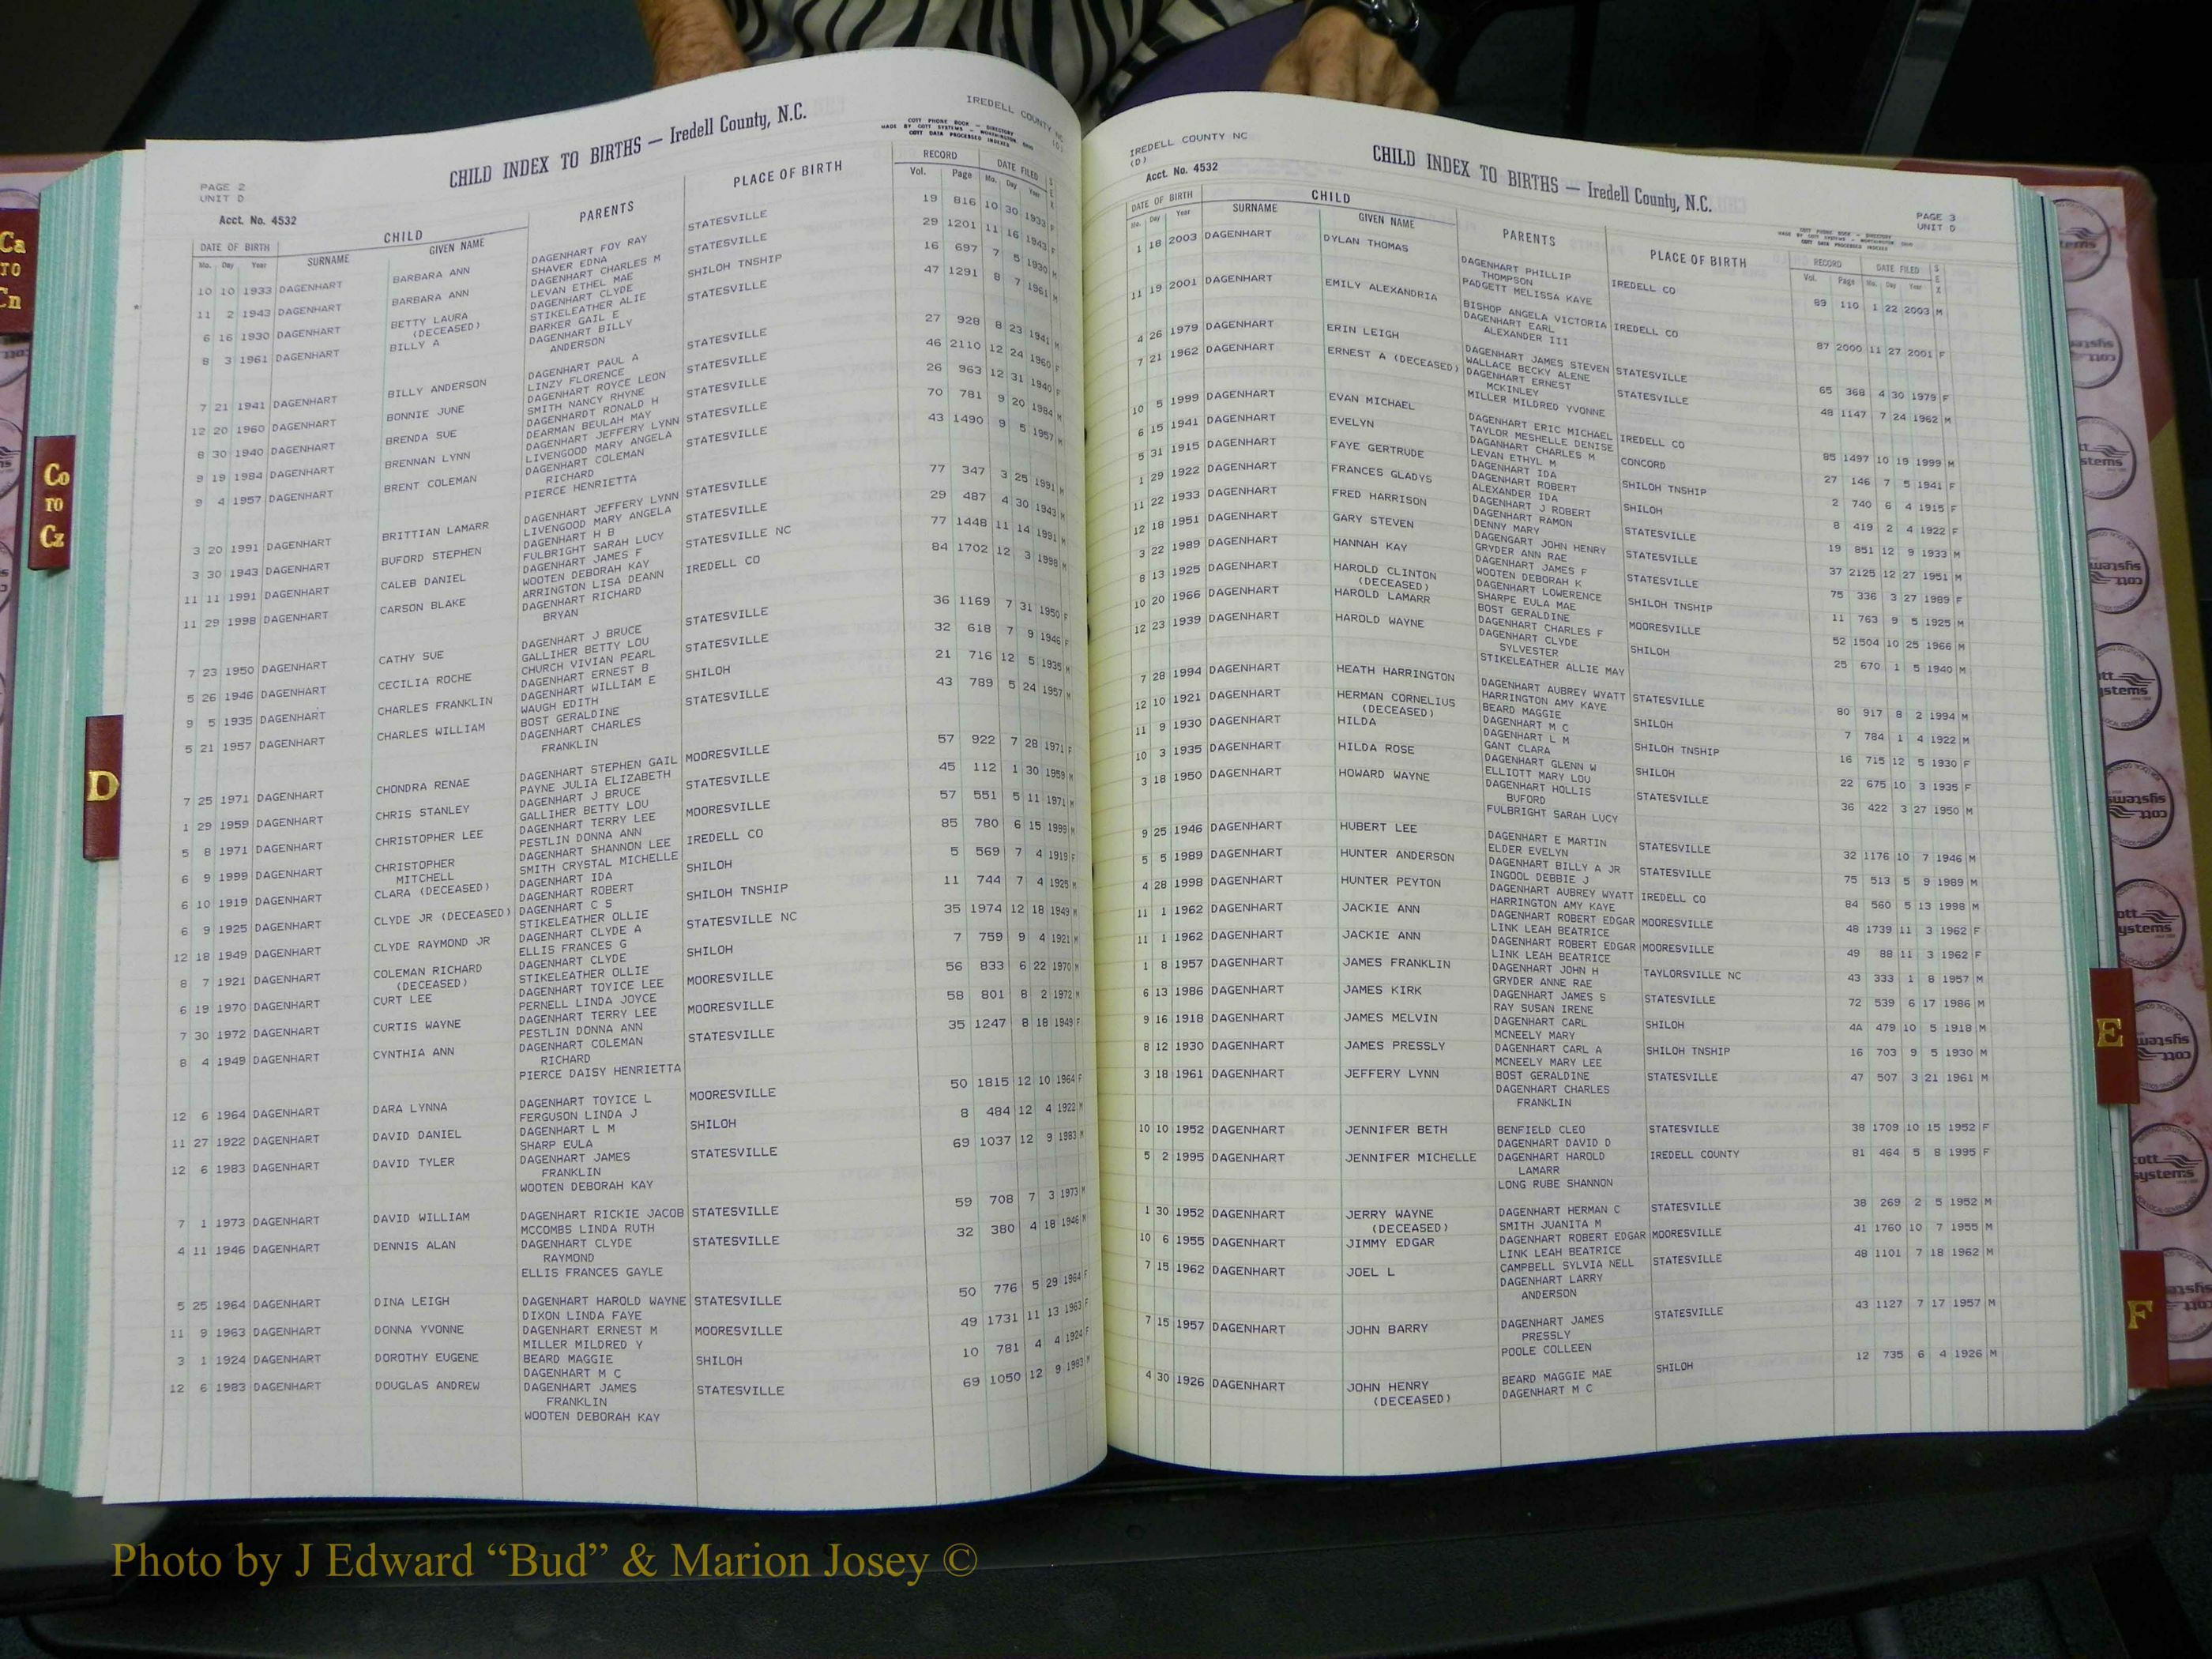 PAGE 2
UNIT D
CHILD INDEX TO BIRTHS — Iredell County, N.C.
IREDELL COUNTY NC
(D)
COTT PHONE BOOK — DIRECTORY
MADE BY COTT SYSTEMS — WORTHINGTON, OHIO
COTT DATA PROCESSED INDEXES
Acct. No. 4532
DATE OF BIRTH CHILD PARENTS PLACE OF BIRTH RECORD DATE FILED SEX
Mo. Day Year SURNAME GIVEN NAME Vol. Page Mo. Day Year
10 10 1933 DAGENHART BARBARA ANN DAGENHART FOY RAY STATESVILLE 19 816 10 30 1933 F
SHAVER EDNA
11 2 1943 DAGENHART BARBARA ANN DAGENHART CHARLES M STATESVILLE 29 1201 11 16 1943 F
LEVAN ETHEL MAE
6 16 1930 DAGENHART BETTY LAURA DAGENHART CLYDE SHILOH TNSHIP 16 697 7 5 1930
(DECEASED) STIKELEATHER ALIE
8 3 1961 DAGENHART BILLY A BARKER GAIL E STATESVILLE 47 1291 8 7 1961 M
DAGENHART BILLY
ANDERSON
7 21 1941 DAGENHART BILLY ANDERSON DAGENHART PAUL A STATESVILLE 27 928 8 23 1941 M
LINZY FLORENCE
12 20 1960 DAGENHART BONNIE JUNE DAGENHART ROYCE LEON STATESVILLE 46 2110 12 24 1960 F
SMITH NANCY RHYNE
8 30 1940 DAGENHART BRENDA SUE DAGENHARDT RONALD H STATESVILLE 26 963 12 31 1940 F
DEARMAN BEULAH MAY
9 19 1984 DAGENHART BRENNAN LYNN DAGENHART JEFFERY LYNN STATESVILLE 70 781 9 20 1984 M
LIVENGOOD MARY ANGELA
9 4 1957 DAGENHART BRENT COLEMAN DAGENHART COLEMAN STATESVILLE 43 1490 9 5 1957 M
RICHARD
PIERCE HENRIETTA
3 20 1991 DAGENHART BRITTIAN LAMARR DAGENHART JEFFERY LYNN STATESVILLE 77 347 3 25 1991 M
LIVENGOOD MARY ANGELA
3 30 1943 DAGENHART BUFORD STEPHEN DAGENHART H B STATESVILLE 29 487 4 30 1943 M
FULBRIGHT SARAH LUCY
11 11 1991 DAGENHART CALEB DANIEL DAGENHART JAMES F STATESVILLE NC 77 1448 11 14 1991 M
WOOTEN DEBORAH KAY
11 29 1998 DAGENHART CARSON BLAKE ARRINGTON LISA DEANN IREDELL CO 84 1702 12 3 1998 M
DAGENHART RICHARD
BRYAN
7 23 1950 DAGENHART CATHY SUE DAGENHART J BRUCE STATESVILLE 36 1169 7 31 1950 F
GALLIHER BETTY LOU
5 26 1946 DAGENHART CECILIA ROCHE CHURCH VIVIAN PEARL STATESVILLE 32 618 7 9 1946 F
DAGENHART ERNEST B
9 5 1935 DAGENHART CHARLES FRANKLIN DAGENHART WILLIAM E SHILOH 21 716 12 5 1935 M
WAUGH EDITH
5 21 1957 DAGENHART CHARLES WILLIAM BOST GERALDINE STATESVILLE 43 789 5 24 1957 M
DAGENHART CHARLES
FRANKLIN
7 25 1971 DAGENHART CHONDRA RENAE DAGENHART STEPHEN GAIL MOORESVILLE 57 922 7 28 1971 F
PAYNE JULIA ELIZABETH
1 29 1959 DAGENHART CHRIS STANLEY DAGENHART J BRUCE STATESVILLE 45 112 1 30 1959 M
GALLIHER BETTY LOU
5 8 1971 DAGENHART CHRISTOPHER LEE DAGENHART TERRY LEE MOORESVILLE 57 551 5 11 1971 M
PESTLIN DONNA ANN
6 9 1999 DAGENHART CHRISTOPHER DAGENHART SHANNON LEE IREDELL CO 85 780 6 15 1999 M
MITCHELL SMITH CRYSTAL MICHELLE
6 10 1919 DAGENHART CLARA (DECEASED) DAGENHART IDA SHILOH 5 569 7 4 1919 F
DAGENHART ROBERT
6 9 1925 DAGENHART CLYDE JR (DECEASED) DAGENHART C S SHILOH TNSHIP 11 744 7 4 1925 M
STIKELEATHER OLLIE
12 18 1949 DAGENHART CLYDE RAYMOND JR DAGENHART CLYDE A STATESVILLE NC 35 1974 12 18 1949 M
ELLIS FRANCES G
8 7 1921 DAGENHART COLEMAN RICHARD DAGENHART CLYDE SHILOH 7 759 9 4 1921 M
(DECEASED) STIKELEATHER OLLIE
6 19 1970 DAGENHART CURT LEE DAGENHART TOYICE LEE MOORESVILLE 56 833 6 22 1970 M
PERNELL LINDA JOYCE
7 30 1972 DAGENHART CURTIS WAYNE DAGENHART TERRY LEE MOORESVILLE 58 801 8 2 1972 M
PESTLIN DONNA ANN
8 4 1949 DAGENHART CYNTHIA ANN DAGENHART COLEMAN STATESVILLE 35 1247 8 18 1949 F
RICHARD
PIERCE DAISY HENRIETTA
12 6 1964 DAGENHART DARA LYNNA DAGENHART TOYICE L MOORESVILLE 50 1815 12 10 1964 F
FERGUSON LINDA J
11 27 1922 DAGENHART DAVID DANIEL DAGENHART L M SHILOH 8 484 12 4 1922 M
SHARP EULA
12 6 1983 DAGENHART DAVID TYLER DAGENHART JAMES STATESVILLE 69 1037 12 9 1983 M
FRANKLIN
WOOTEN DEBORAH KAY
7 1 1973 DAGENHART DAVID WILLIAM DAGENHART RICKIE JACOB STATESVILLE 59 708 7 3 1973 M
MCCOMBS LINDA RUTH
4 11 1946 DAGENHART DENNIS ALAN DAGENHART CLYDE STATESVILLE 32 380 4 18 1946 M
RAYMOND
ELLIS FRANCES GAYLE
5 25 1964 DAGENHART DINA LEIGH DAGENHART HAROLD WAYNE STATESVILLE 50 776 5 29 1964 F
DIXON LINDA FAYE
11 9 1963 DAGENHART DONNA YVONNE DAGENHART ERNEST M MOORESVILLE 49 1731 11 13 1963 F
MILLER MILDRED Y
3 1 1924 DAGENHART DOROTHY EUGENE BEARD MAGGIE SHILOH 10 781 4 4 1924 F
DAGENHART M C
12 6 1983 DAGENHART DOUGLAS ANDREW DAGENHART JAMES STATESVILLE 69 1050 12 9 1983 M
FRANKLIN
WOOTEN DEBORAH KAY
IREDELL COUNTY NC
(D)
CHILD INDEX TO BIRTHS — Iredell County, N.C.
PAGE 3
UNIT D
Acct. No. 4532
COTT PHONE BOOK — DIRECTORY
MADE BY COTT SYSTEMS — WORTHINGTON, OHIO
COTT DATA PROCESSED INDEXES
DATE OF BIRTH CHILD PARENTS PLACE OF BIRTH RECORD DATE FILED SEX
Mo. Day Year SURNAME GIVEN NAME Vol. Page Mo. Day Year
1 18 2003 DAGENHART DYLAN THOMAS DAGENHART PHILLIP IREDELL CO 89 110 1 22 2003 M
THOMPSON
PADGETT MELISSA KAYE
11 19 2001 DAGENHART EMILY ALEXANDRIA BISHOP ANGELA VICTORIA IREDELL CO 87 2000 11 27 2001 F
DAGENHART EARL
ALEXANDER III
4 26 1979 DAGENHART ERIN LEIGH DAGENHART JAMES STEVEN STATESVILLE 65 368 4 30 1979 F
WALLACE BECKY ALENE
7 21 1962 DAGENHART ERNEST A (DECEASED) DAGENHART ERNEST STATESVILLE 48 1147 7 24 1962 M
MCKINLEY
MILLER MILDRED YVONNE
10 5 1999 DAGENHART EVAN MICHAEL DAGENHART ERIC MICHAEL IREDELL CO 85 1497 10 19 1999 M
TAYLOR MESHELLE DENISE
6 15 1941 DAGENHART EVELYN DAGANHART CHARLES M CONCORD 27 146 7 5 1941 F
LEVAN ETHYL M
5 31 1915 DAGENHART FAYE GERTRUDE DAGENHART IDA SHILOH TNSHIP 2 740 6 4 1915 F
DAGENHART ROBERT
1 29 1922 DAGENHART FRANCES GLADYS ALEXANDER IDA SHILOH 8 419 2 4 1922 F
DAGENHART J ROBERT
11 22 1933 DAGENHART FRED HARRISON DAGENHART RAMON STATESVILLE 19 851 12 9 1933 M
DENNY MARY
12 18 1951 DAGENHART GARY STEVEN DAGENGART JOHN HENRY STATESVILLE 37 2125 12 27 1951 M
GRYDER ANN RAE
3 22 1989 DAGENHART HANNAH KAY DAGENHART JAMES F STATESVILLE 75 336 3 27 1989 F
WOOTEN DEBORAH K
8 13 1925 DAGENHART HAROLD CLINTON DAGENHART LOWERENCE SHILOH TNSHIP 11 763 9 5 1925 M
(DECEASED) SHARPE EULA MAE
10 20 1966 DAGENHART HAROLD LAMARR BOST GERALDINE MOORESVILLE 52 1504 10 25 1966 M
DAGENHART CHARLES F
12 23 1939 DAGENHART HAROLD WAYNE DAGENHART CLYDE SHILOH 25 670 1 5 1940 M
SYLVESTER
STIKELEATHER ALLIE MAY
7 28 1994 DAGENHART HEATH HARRINGTON DAGENHART AUBREY WYATT STATESVILLE 80 917 8 2 1994 M
HARRINGTON AMY KAYE
12 10 1921 DAGENHART HERMAN CORNELIUS BEARD MAGGIE SHILOH 7 784 1 4 1922 M
(DECEASED) DAGENHART M C
11 9 1930 DAGENHART HILDA DAGENHART L M SHILOH TNSHIP 16 715 12 5 1930 F
GANT CLARA
10 3 1935 DAGENHART HILDA ROSE DAGENHART GLENN W SHILOH 22 675 10 3 1935 F
ELLIOTT MARY LOU
3 18 1950 DAGENHART HOWARD WAYNE DAGENHART HOLLIS STATESVILLE 36 422 3 27 1950 M
BUFORD
FULBRIGHT SARAH LUCY
9 25 1946 DAGENHART HUBERT LEE DAGENHART E MARTIN STATESVILLE 32 1176 10 7 1946 M
ELDER EVELYN
5 5 1989 DAGENHART HUNTER ANDERSON DAGENHART BILLY A JR STATESVILLE 75 513 5 9 1989 M
INGOOL DEBBIE J
4 28 1998 DAGENHART HUNTER PEYTON DAGENHART AUBREY WYATT IREDELL CO 84 560 5 13 1998 M
HARRINGTON AMY KAYE
11 1 1962 DAGENHART JACKIE ANN DAGENHART ROBERT EDGAR MOORESVILLE 48 1739 11 3 1962 F
LINK LEAH BEATRICE
11 1 1962 DAGENHART JACKIE ANN DAGENHART ROBERT EDGAR MOORESVILLE 49 88 11 3 1962 F
LINK LEAH BEATRICE
1 8 1957 DAGENHART JAMES FRANKLIN DAGENHART JOHN H TAYLORSVILLE NC 43 333 1 8 1957 M
GRYDER ANNE RAE
6 13 1986 DAGENHART JAMES KIRK DAGENHART JAMES S STATESVILLE 72 539 6 17 1986 M
RAY SUSAN IRENE
9 16 1918 DAGENHART JAMES MELVIN DAGENHART CARL SHILOH 4A 479 10 5 1918 M
MCNEELY MARY
8 12 1930 DAGENHART JAMES PRESSLY DAGENHART CARL A SHILOH TNSHIP 16 703 9 5 1930 M
MCNEELY MARY LEE
3 18 1961 DAGENHART JEFFERY LYNN BOST GERALDINE STATESVILLE 47 507 3 21 1961 M
DAGENHART CHARLES
FRANKLIN
10 10 1952 DAGENHART JENNIFER BETH BENFIELD CLEO STATESVILLE 38 1709 10 15 1952 F
DAGENHART DAVID D
5 2 1995 DAGENHART JENNIFER MICHELLE DAGENHART HAROLD IREDELL COUNTY 81 464 5 8 1995 F
LAMARR
LONG RUBE SHANNON
1 30 1952 DAGENHART JERRY WAYNE DAGENHART HERMAN C STATESVILLE 38 269 2 5 1952 M
(DECEASED) SMITH JUANITA M
10 6 1955 DAGENHART JIMMY EDGAR DAGENHART ROBERT EDGAR MOORESVILLE 41 1760 10 7 1955 M
LINK LEAH BEATRICE
7 15 1962 DAGENHART JOEL L CAMPBELL SYLVIA NELL STATESVILLE 48 1101 7 18 1962 M
DAGENHART LARRY
ANDERSON
7 15 1957 DAGENHART JOHN BARRY DAGENHART JAMES STATESVILLE 43 1127 7 17 1957 M
PRESSLY
POOLE COLLEEN
4 30 1926 DAGENHART JOHN HENRY BEARD MAGGIE MAE SHILOH 12 735 6 4 1926 M
(DECEASED) DAGENHART M C
Ca
TO
Cn
Co
TO
Cz
D
E
F
cott
systems
Photo by J Edward “Bud” & Marion Josey ©